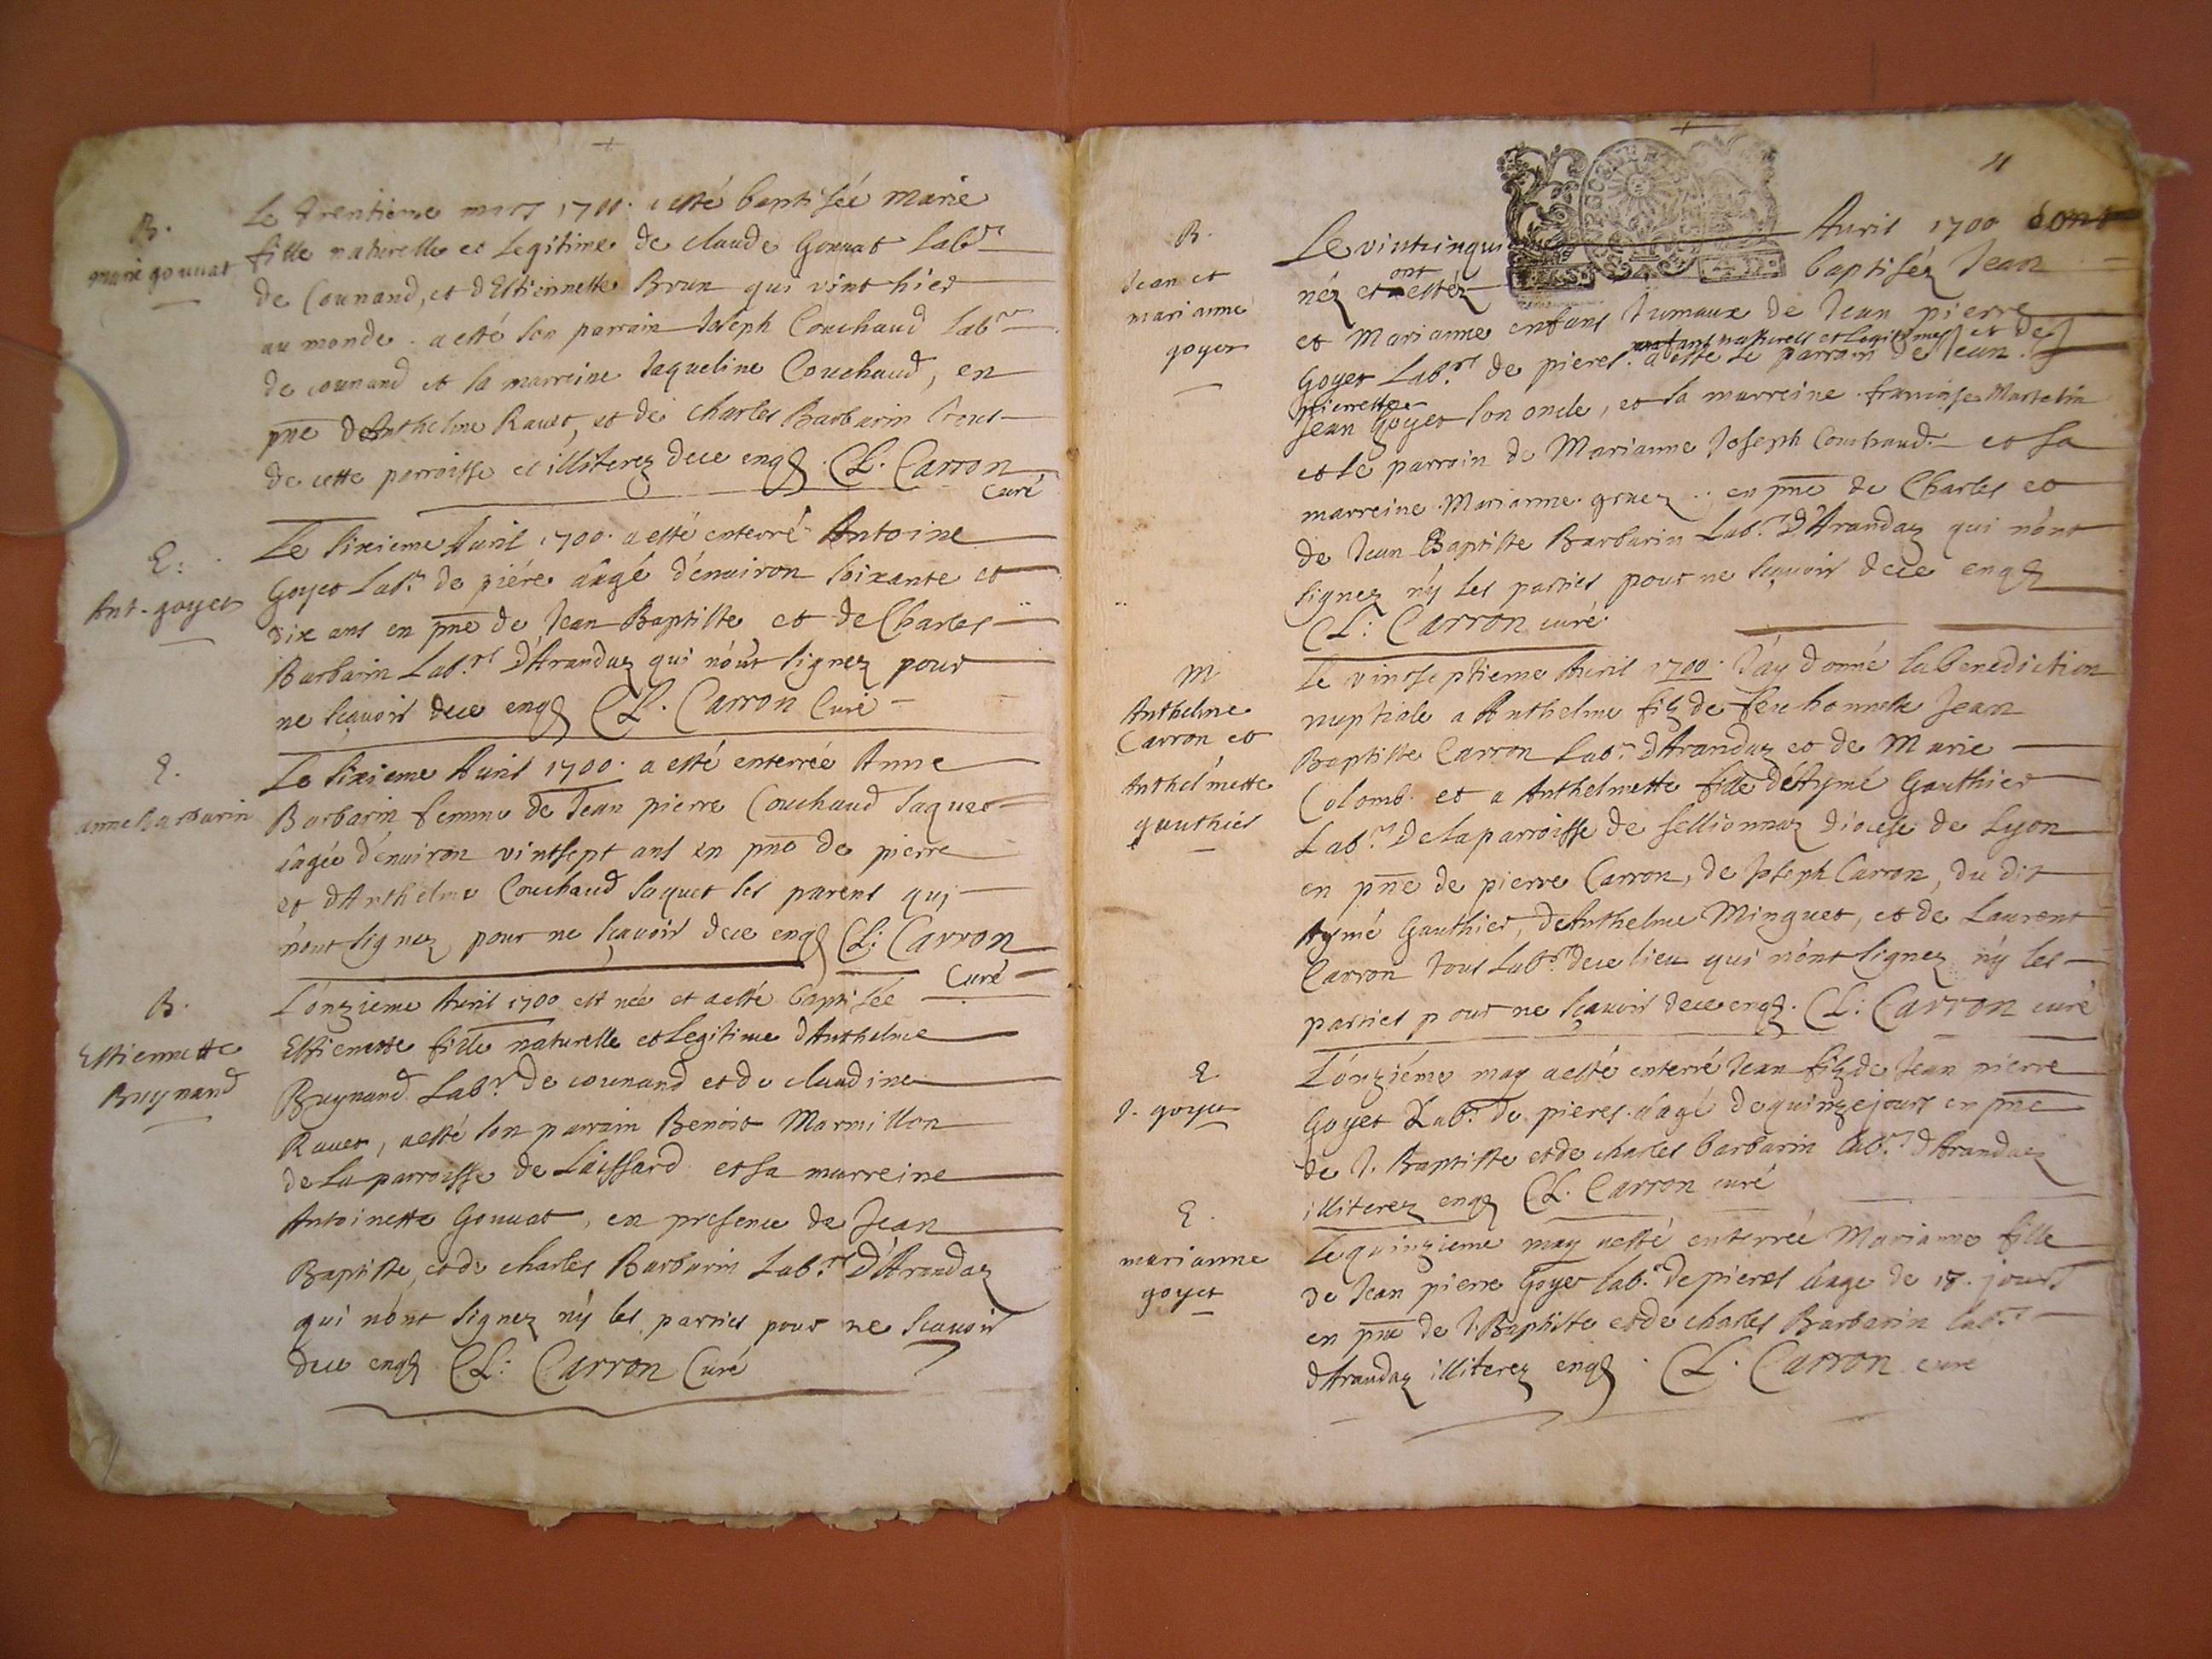 B.
marie gouuat
Le trentieme mars 1700. a esté baptisée Marie
fille naturelle et Legitime de claude Gouuat Lab.r
de Counand, et d'Estiennette Brun qui vint hier
au monde. a esté son parrain Joseph Couchaud Lab.r
de counand et sa marreine Jaqueline Couchaud, en
pnce d'Anthelme Rauet, et de Charles Barbarin tous
de cette parroisse et illiterez de ce enq. CL. Carron
Curé
E.
Ant. goyet
Le sixieme Auril 1700. a esté enterré Antoine
Goyet Lab.r de piére aâgé d'enuiron soixante et
dix ans en pnce de Jean Baptiste et de Charles
Barbarin Lab.rs d'Arandaz qui n'ont signez pour
ne sçauoir de ce enq CL. Carron Curé
E.
anne barbarin
Le sixieme Auril 1700. a esté enterrée Anne
Barbarin femme de Jean pierre Couchaud Jaquet
aâgée d'enuiron vintsept ans en pnce de pierre
et d'Anthelme Couchaud Jaquet ses parens qui
n'ont signez, pour ne sçauoir de ce enq CL: Carron
Curé
B.
Estiennette
Buynand
L'onzieme Auril 1700 est née et a esté baptisée
Estienette fille naturelle et Legitime d'Anthelme
Buynand Lab.r de counand et de claudine
Rauet, a esté son parrain Benoit Marmillon
de La parroisse de Laissard et sa marreine
Antoinette Gouuat, en presence de Jean
Baptiste, et de charles Barbarin Lab.rs D'Arandaz
qui n'ont signez n'y les parties pour ne sçauoir
de ce enq CL: Carron Curé
4
B.
Jean et
marianne
goyet
Le vintcinquieme Auril 1700 sont
néz et ont estéz baptiséz Jean
et Marianne enfans Jumaux de Jean pierre
enfans naturels et Legitimes et de
Goyet Lab.r de pieres. a esté le parrain de Jean
pierrette
Jean Goyet son oncle, et sa marreine francoise Martelin
et le parrain de Marianne Joseph Couchaud et sa
marreine Marianne en pnce de Charles et
de Jean Baptiste Barbarin Lab.rs D'Arandaz qui n'ont
signez n'y les parties pour ne sçauoir de ce enq
CL: Carron curé.
M
Anthelme
Carron et
Anthel'mette
gauthier
Le vintseptieme Auril 1700. J'ay donné la benediction
nuptiale a Anthelme filz de feu honneste Jean
Baptiste Carron Lab.r d'Arandaz et de Marie
Colomb. et a Anthelmette fille d'Aymé Gauthier
Lab.r De la parroisse de sellionnaz diocese de Lyon
en pnce de pierre Carron, de Joseph Carron, du dit
Aymé Gauthier, d'Anthelme Minguet, et de Laurent
Carron tous Lab.rs de ce lieu qui n'ont signez n'y les
parties pour ne sçauoir de ce enq. CL: Carron curé
E
J. goyet
L'onziéme may a esté enterré Jean filz de Jean pierre
Goyet Lab.r de pieres. aâgé de quinze jours en pnce
de J. Baptiste et de charles barbarin lab.rs d'Arandaz
illiterez enq CL. Carron curé
E.
marianne
goyet
Le quinzieme may a esté enterrée Marianne fille
de Jean pierre Goyet lab.r de pieres aâge de 18. jours
en pnce de J. Baptiste et de charles Barbarin lab.rs
d'Arandaz illiterez enq. CL. Carron curé